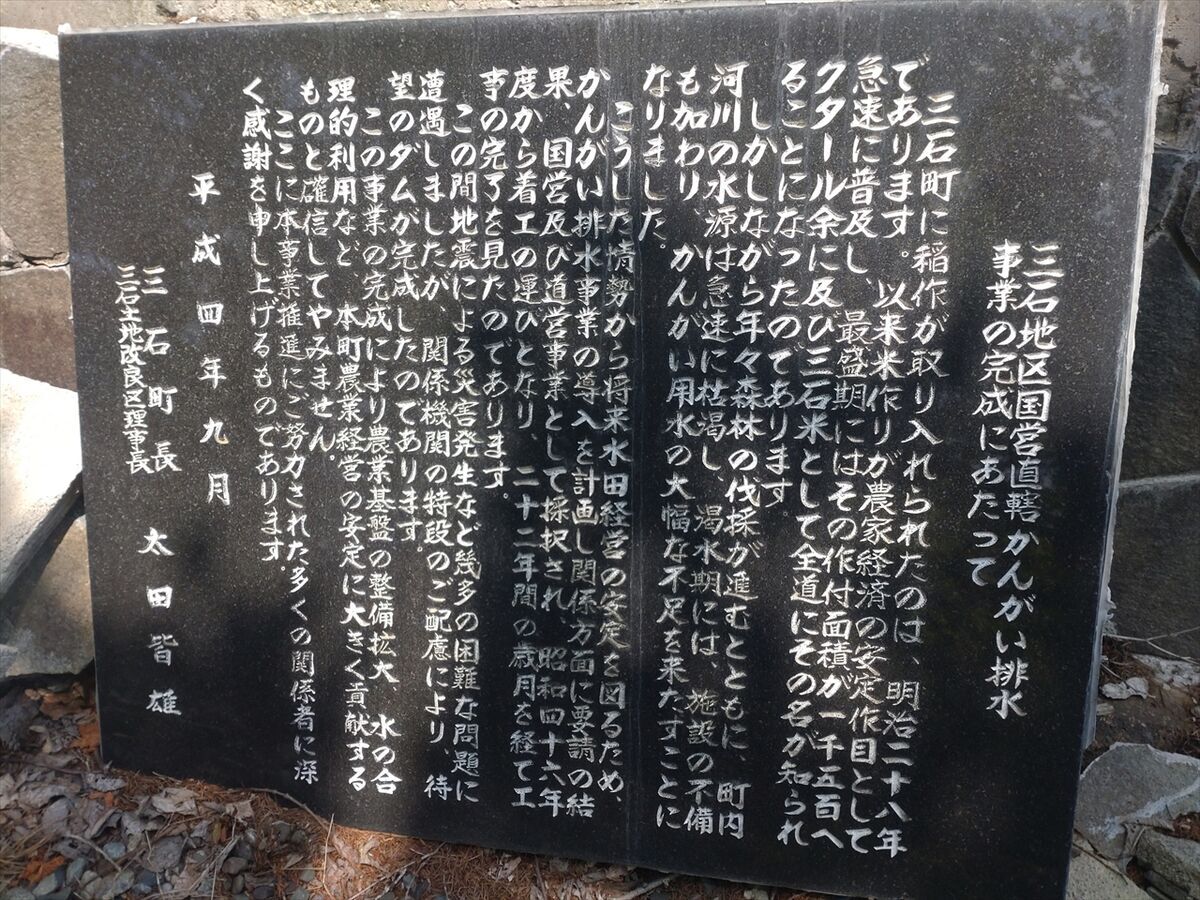 三石地区国営直轄かんがい排水
事業の完成にあたって
三石町に稲作が取り入れられたのは、明治二十八年
であります。以来米作りが農家経済の安定作目として
急速に普及し、最盛期にはその作付面積が一千五百ヘ
クタール余に及び三石米として全道にその名が知られ
ることになったのであります。
しかしながら年々森林の伐採が進むとともに、町内
河川の水源は急速に枯渇し、渇水期には、施設の不備
も加わり、かんがい用水の大幅な不足を来たすことに
なりました。
こうした情勢から将来水田経営の安定を図るため、
かんがい排水事業の導入を計画し関係方面に要請の結
果、国営及び道営事業として採択され、昭和四十六年
度から着工の運びとなり、二十二年間の歳月を経て工
事の完了を見たのであります。
この間地震による災害発生など幾多の困難な問題に
遭遇しましたが、関係機関の特段のご配慮により、待
望のダムが完成したのであります。
この事業の完成により農業基盤の整備拡大、水の合
理的利用など、本町農業経営の安定に大きく貢献する
ものと確信してやみません。
ここに本事業推進にご努力された多くの関係者に深
く感謝を申し上げるものであります。
平成四年九月
三石町長
三石土地改良区理事長
太田皆雄